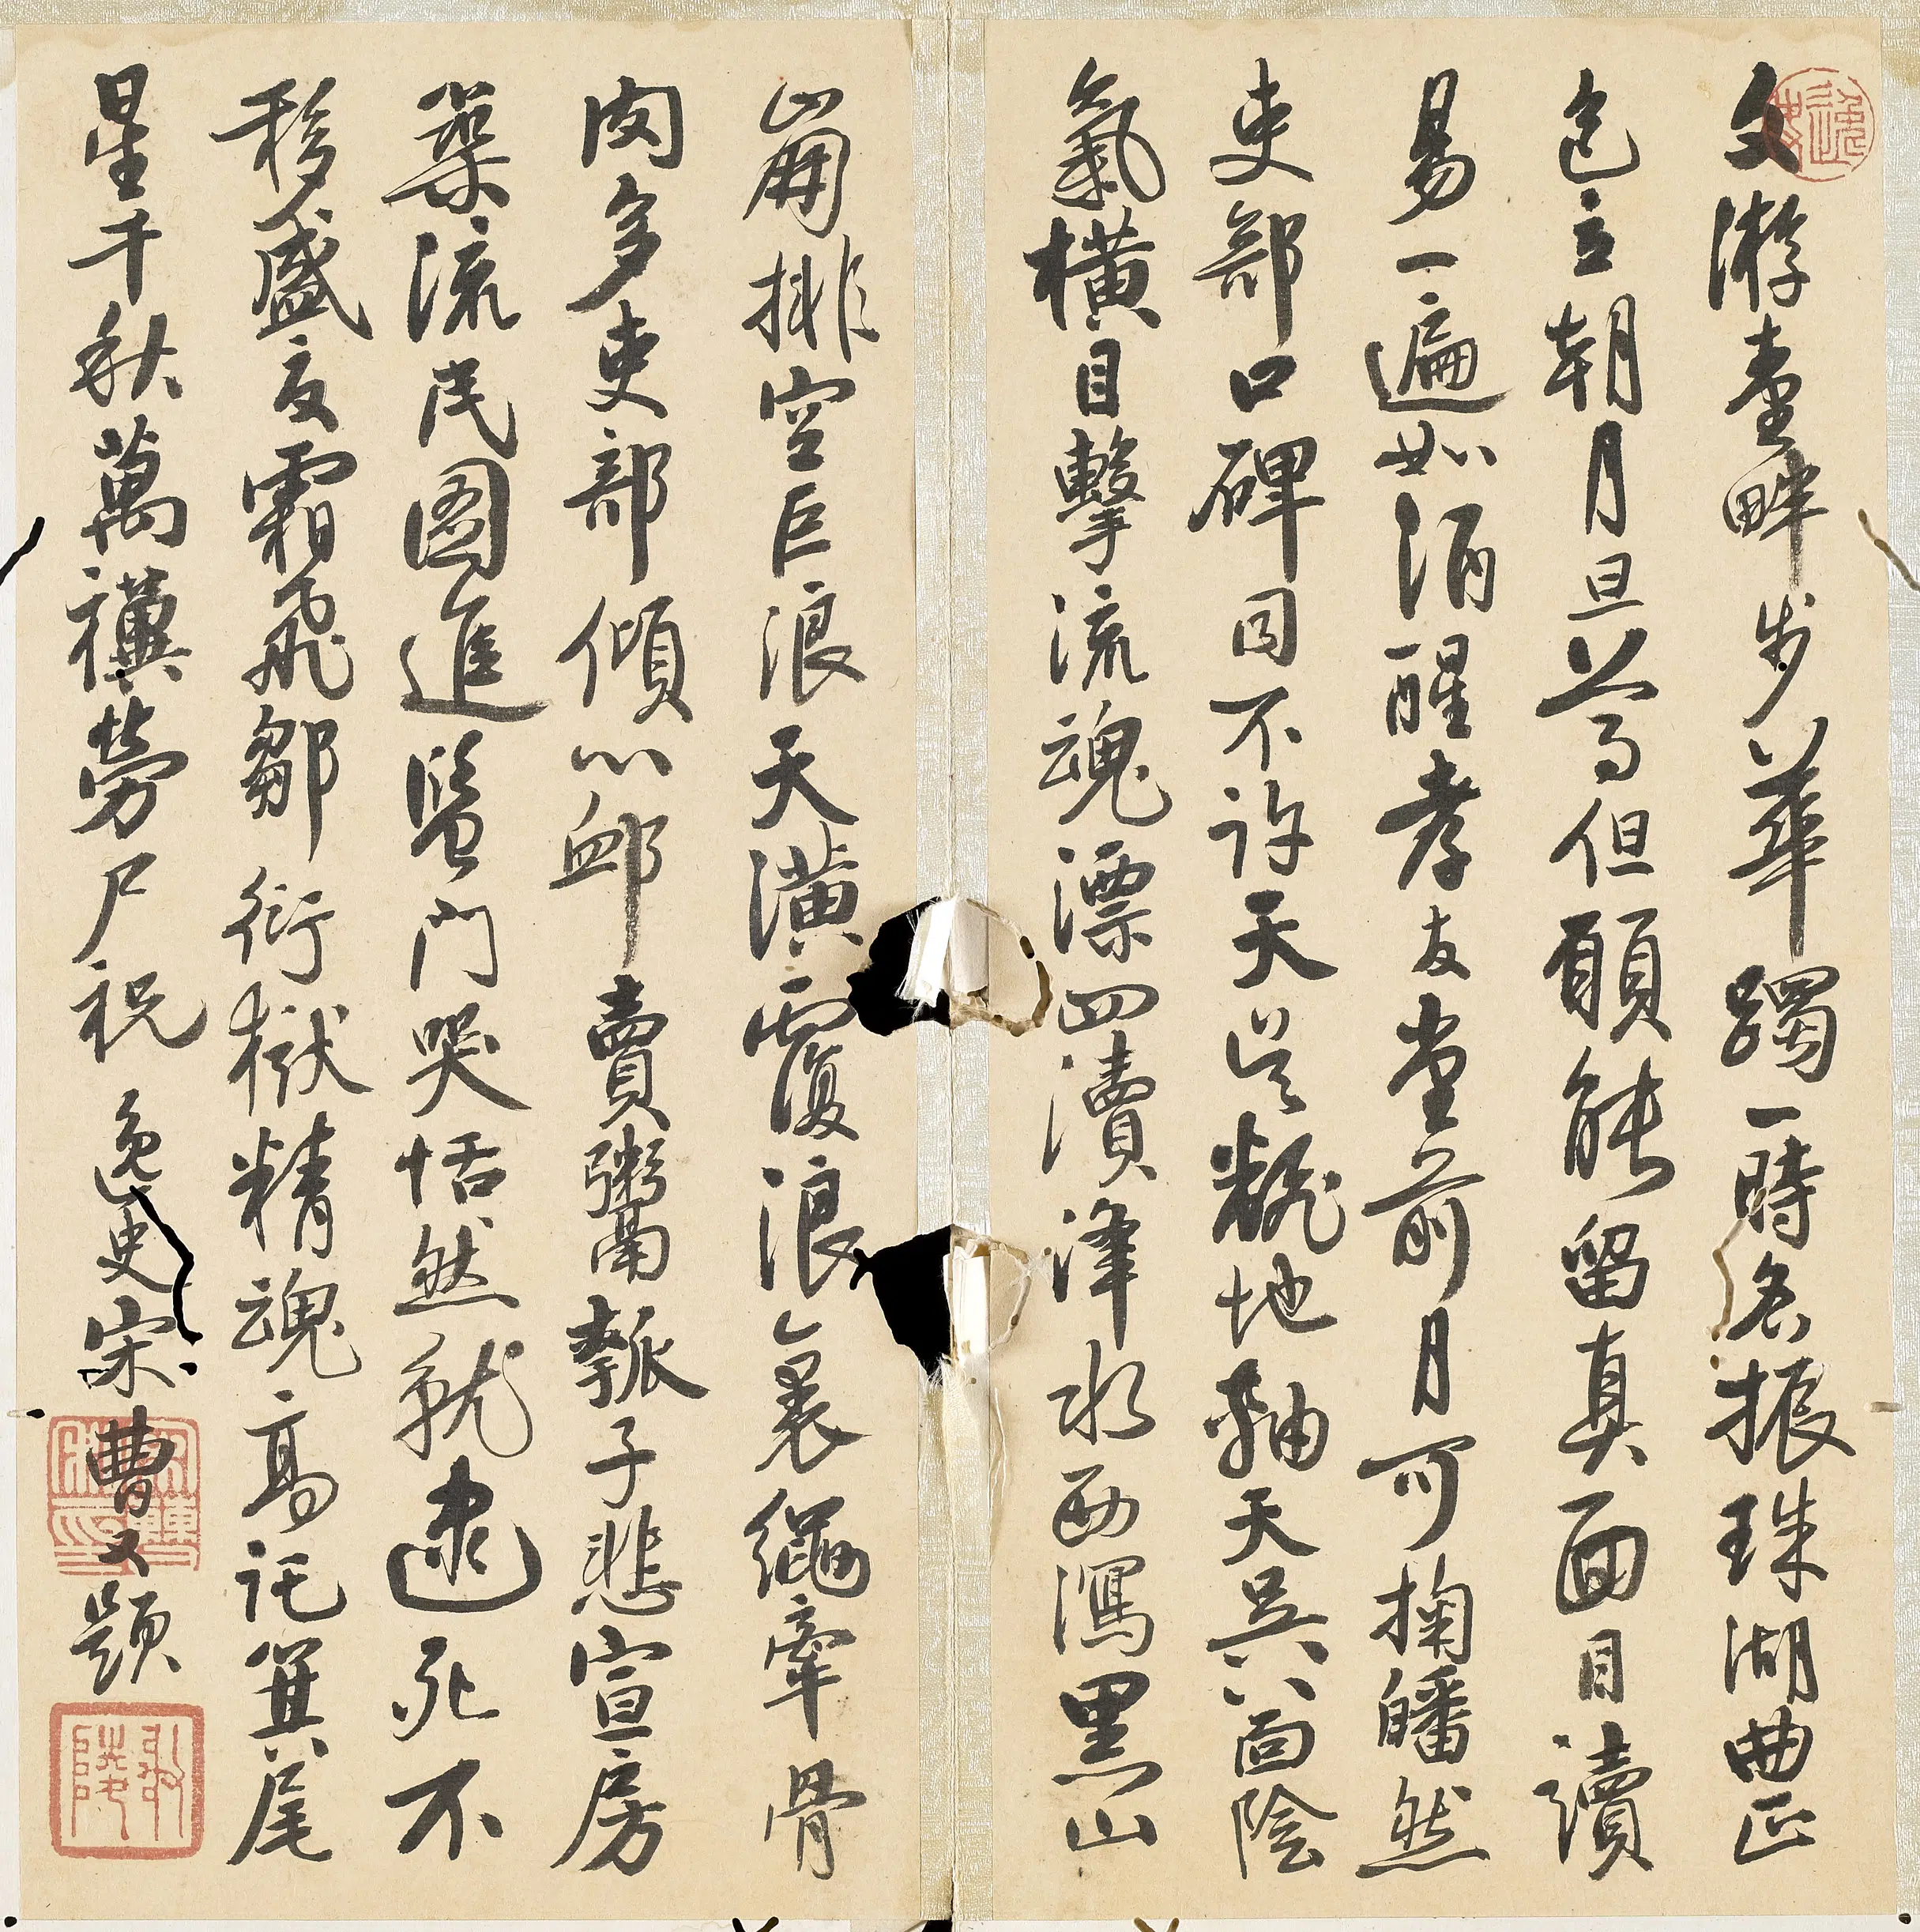 文游臺畔步華躅一時名振珠湖曲正
色立朝月旦等但願能留真面目讀
易一遍如酒醒孝友堂前月可掬皤然
吏部口碑同不許天公翻地軸天吳八面陰
氣橫目擊流魂漂四瀆洚水西瀉黑山
崩排空巨浪天潢覆浪裏繩牽骨
肉多吏部傾心卹賣粥報子悲宣房
築流民圖進監門哭恬然就逮死不
移盛夏霜飛鄒衍獄精魂高託箕尾
星千秋萬禩勞尸祝 逸史宋曹又題